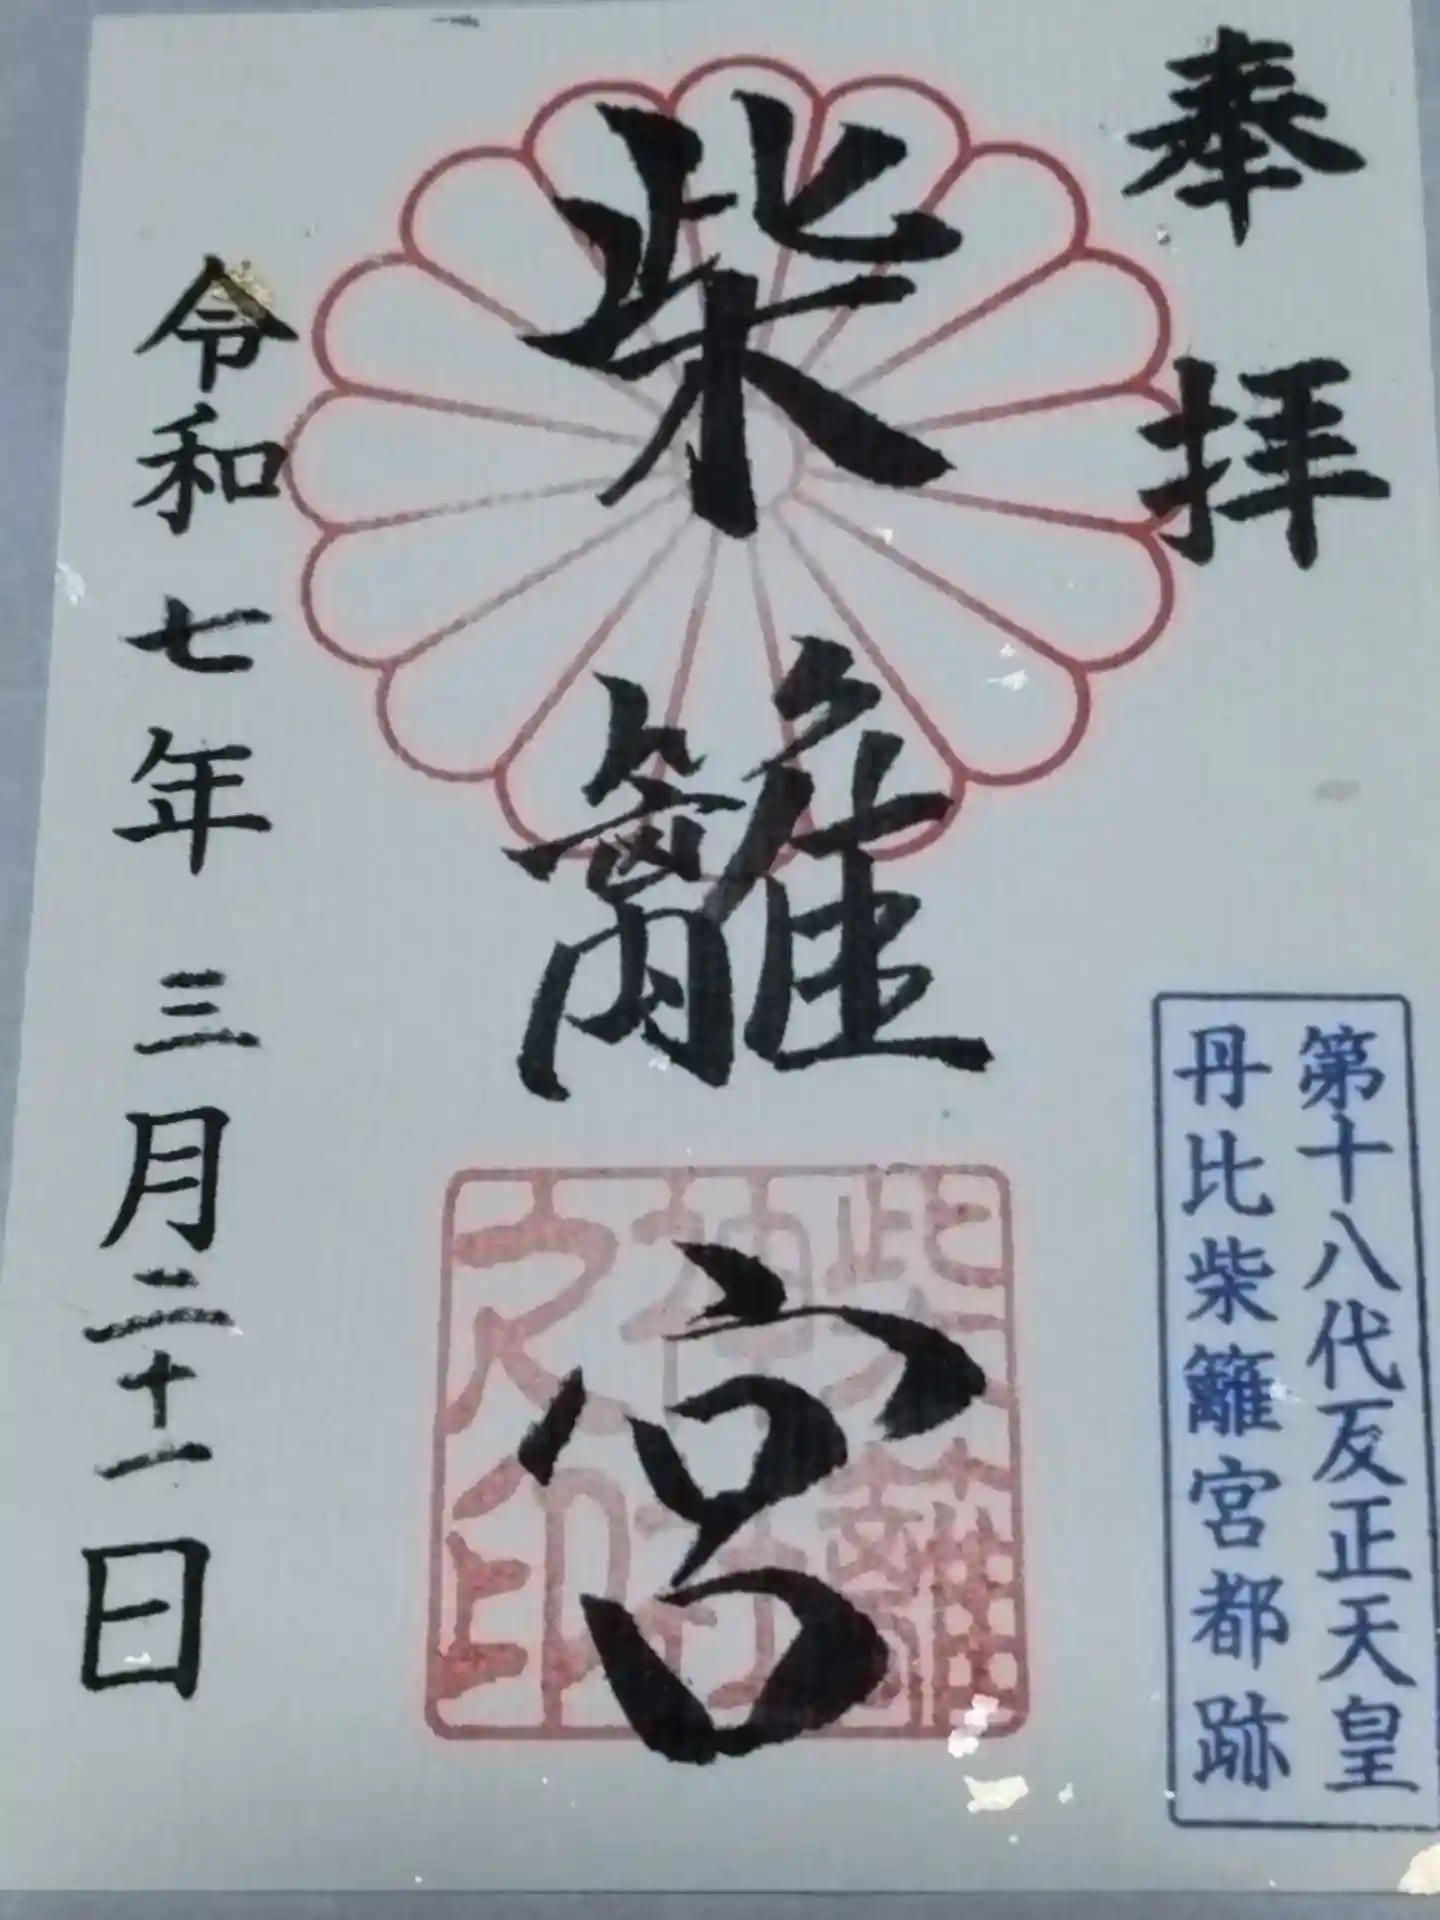 奉拝
第十八代反正天皇
丹比柴籬宮都跡
柴籬宮
柴籬
神社
之印
令和七年三月二十一日